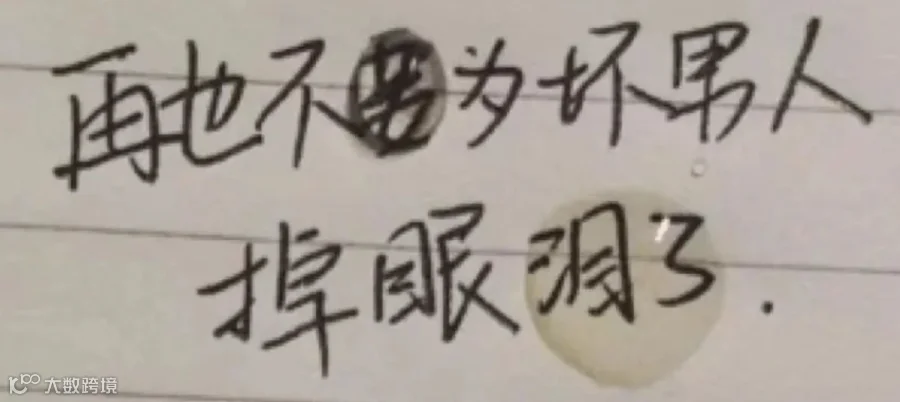 再也不要为坏男人
掉眼泪了.
大数跨境